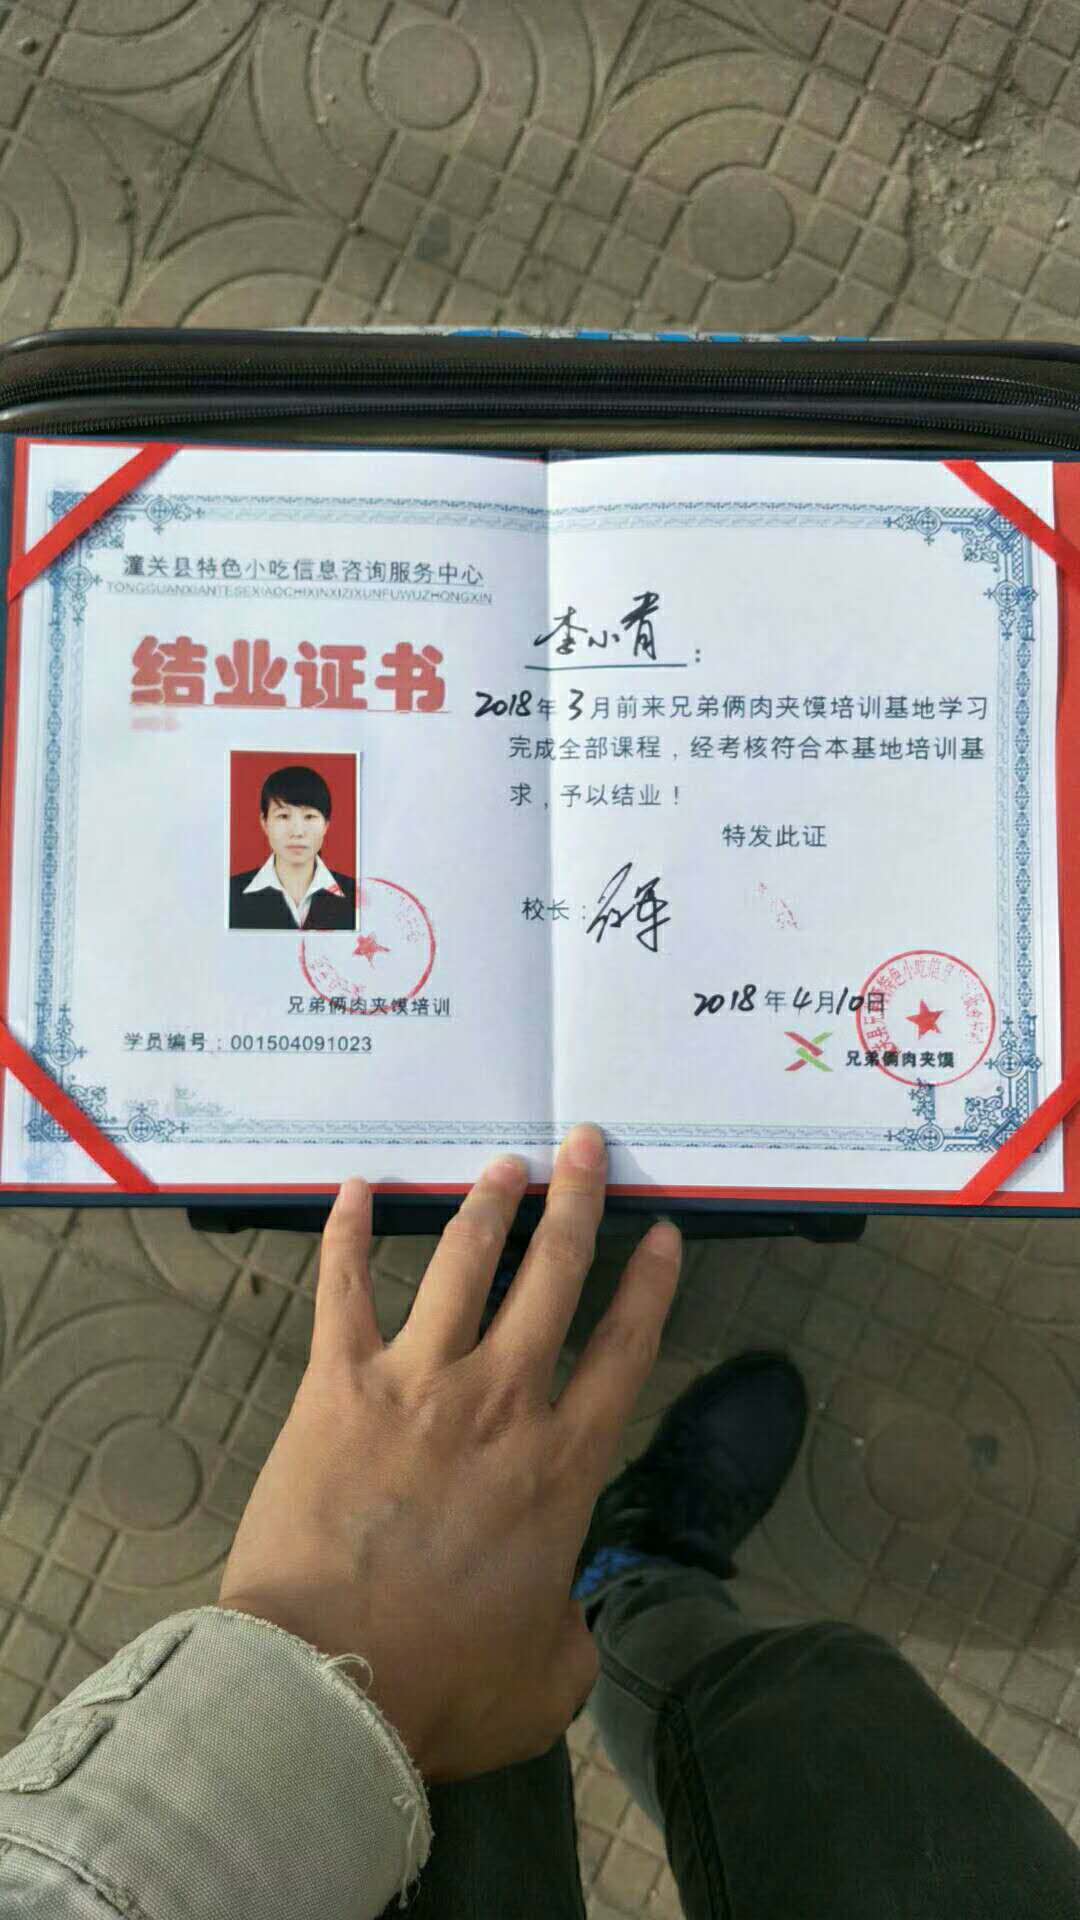 潼关县特色小吃信息咨询服务中心
TONGGUANXIANTESEXIAOCHIXINXIZIXUNFUWUZHONGXIN
结业证书
兄弟俩肉夹馍培训
学员编号：001504091023
李小肖：
2018年3月前来兄弟俩肉夹馍培训基地学习
完成全部课程，经考核符合本基地培训基
求，予以结业！
特发此证
校长：
2018年4月10日
兄弟俩肉夹馍